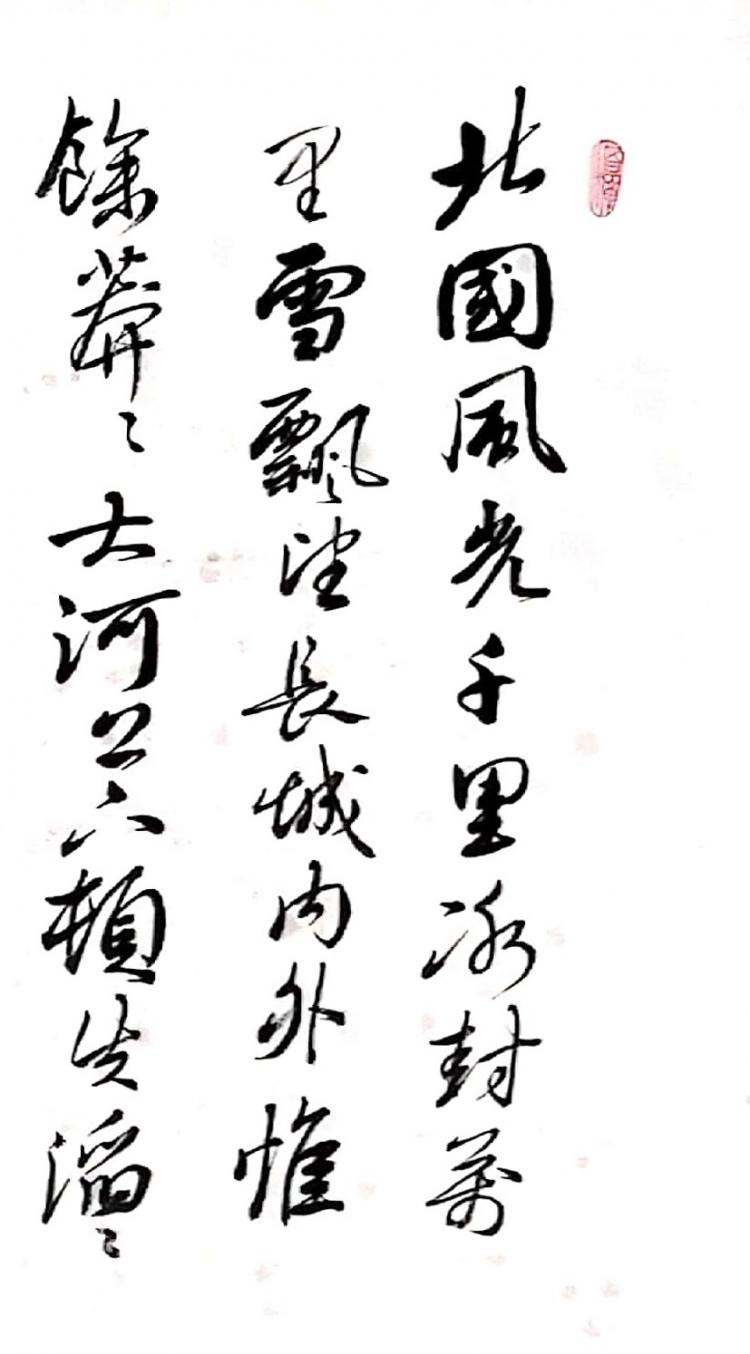 北國風光千里冰封萬
里雪飄望長城內外惟
餘莽〻大河上下頓失滔〻